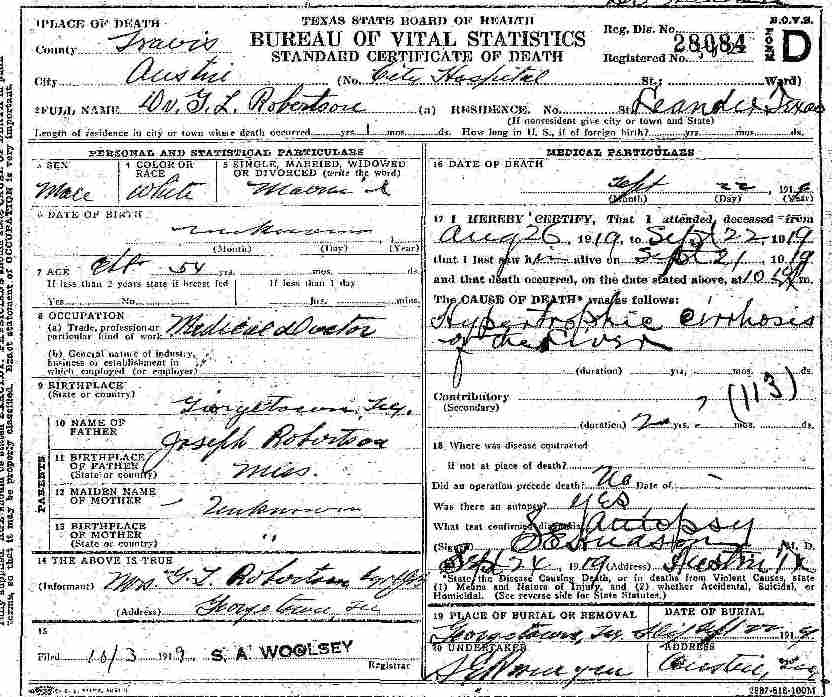 TEXAS STATE BOARD OF HEALTH
BUREAU OF VITAL STATISTICS
STANDARD CERTIFICATE OF DEATH
B.C.V.S.
D
PLACE OF DEATH
County Travis
Reg. Dis. No.
Registered No. 28084
City Austin (No. City Hospital St.; Ward)
2FULL NAME Dr. G. L. Robertson (a) RESIDENCE. No. St. Leander Texas
(If nonresident give city or town and State)
Length of residence in city or town where death occurred yrs. 1 mos. ds. How long in U. S., if of foreign birth? yrs. mos. ds.
PERSONAL AND STATISTICAL PARTICULARS
3 SEX
Male
4 COLOR OR RACE
White
5 SINGLE, MARRIED, WIDOWED
OR DIVORCED (write the word)
6 DATE OF BIRTH
unknown
(Month) (Day) (Year)
7 AGE 54 yrs. mos. ds.
If less than 2 years state if breast fed If less than 1 day
Yes No. hrs. mins.
8 OCCUPATION
(a) Trade, profession or
particular kind of work Medical Doctor
(b) General nature of industry,
business or establishment in
which employed (or employer)
9 BIRTHPLACE
(State or country) Georgetown, Tex.
PARENTS
10 NAME OF
FATHER Joseph Robertson
11 BIRTHPLACE
OF FATHER
(State or country) Miss.
12 MAIDEN NAME
OF MOTHER Unknown
13 BIRTHPLACE
OF MOTHER "
(State or country)
14 THE ABOVE IS TRUE
(Informant) Mrs. G. L. Robertson
(Address) Georgetown, Tex
15
Filed 10/3 1919 S. A. WOOLSEY
Registrar
MEDICAL PARTICULARS
16 DATE OF DEATH
Sept 22, 1919
(Month) (Day) (Year)
17 I HEREBY CERTIFY, That I attended deceased from
Aug 26 1919, to Sept 22, 1919
that I last saw h alive on Sept 21 1919
and that death occurred, on the date stated above, at 10 m.
The CAUSE OF DEATH* was as follows:
Hypertrophic Cirrhosis
of the liver
(duration) yrs. mos. ds.
Contributory
(Secondary) (113)
(duration) 2 yrs. ? mos. ds.
18 Where was disease contracted
if not at place of death?
Did an operation precede death? No Date of
Was there an autopsy? Yes
What test confirmed diagnosis Autopsy
(Signed) S E Hudson M. D.
Sept 24 1919 (Address) Austin Tx
*State the Disease Causing Death, or in deaths from Violent Causes, state
(1) Means and Nature of Injury, and (2) whether Accidental, Suicidal, or
Homicidal. (See reverse side for State Statutes.)
19 PLACE OF BURIAL OR REMOVAL
Georgetown, Tex
DATE OF BURIAL
Sept 22 1919
20 UNDERTAKER
ADDRESS
Austin, Tex
2297-818-100M